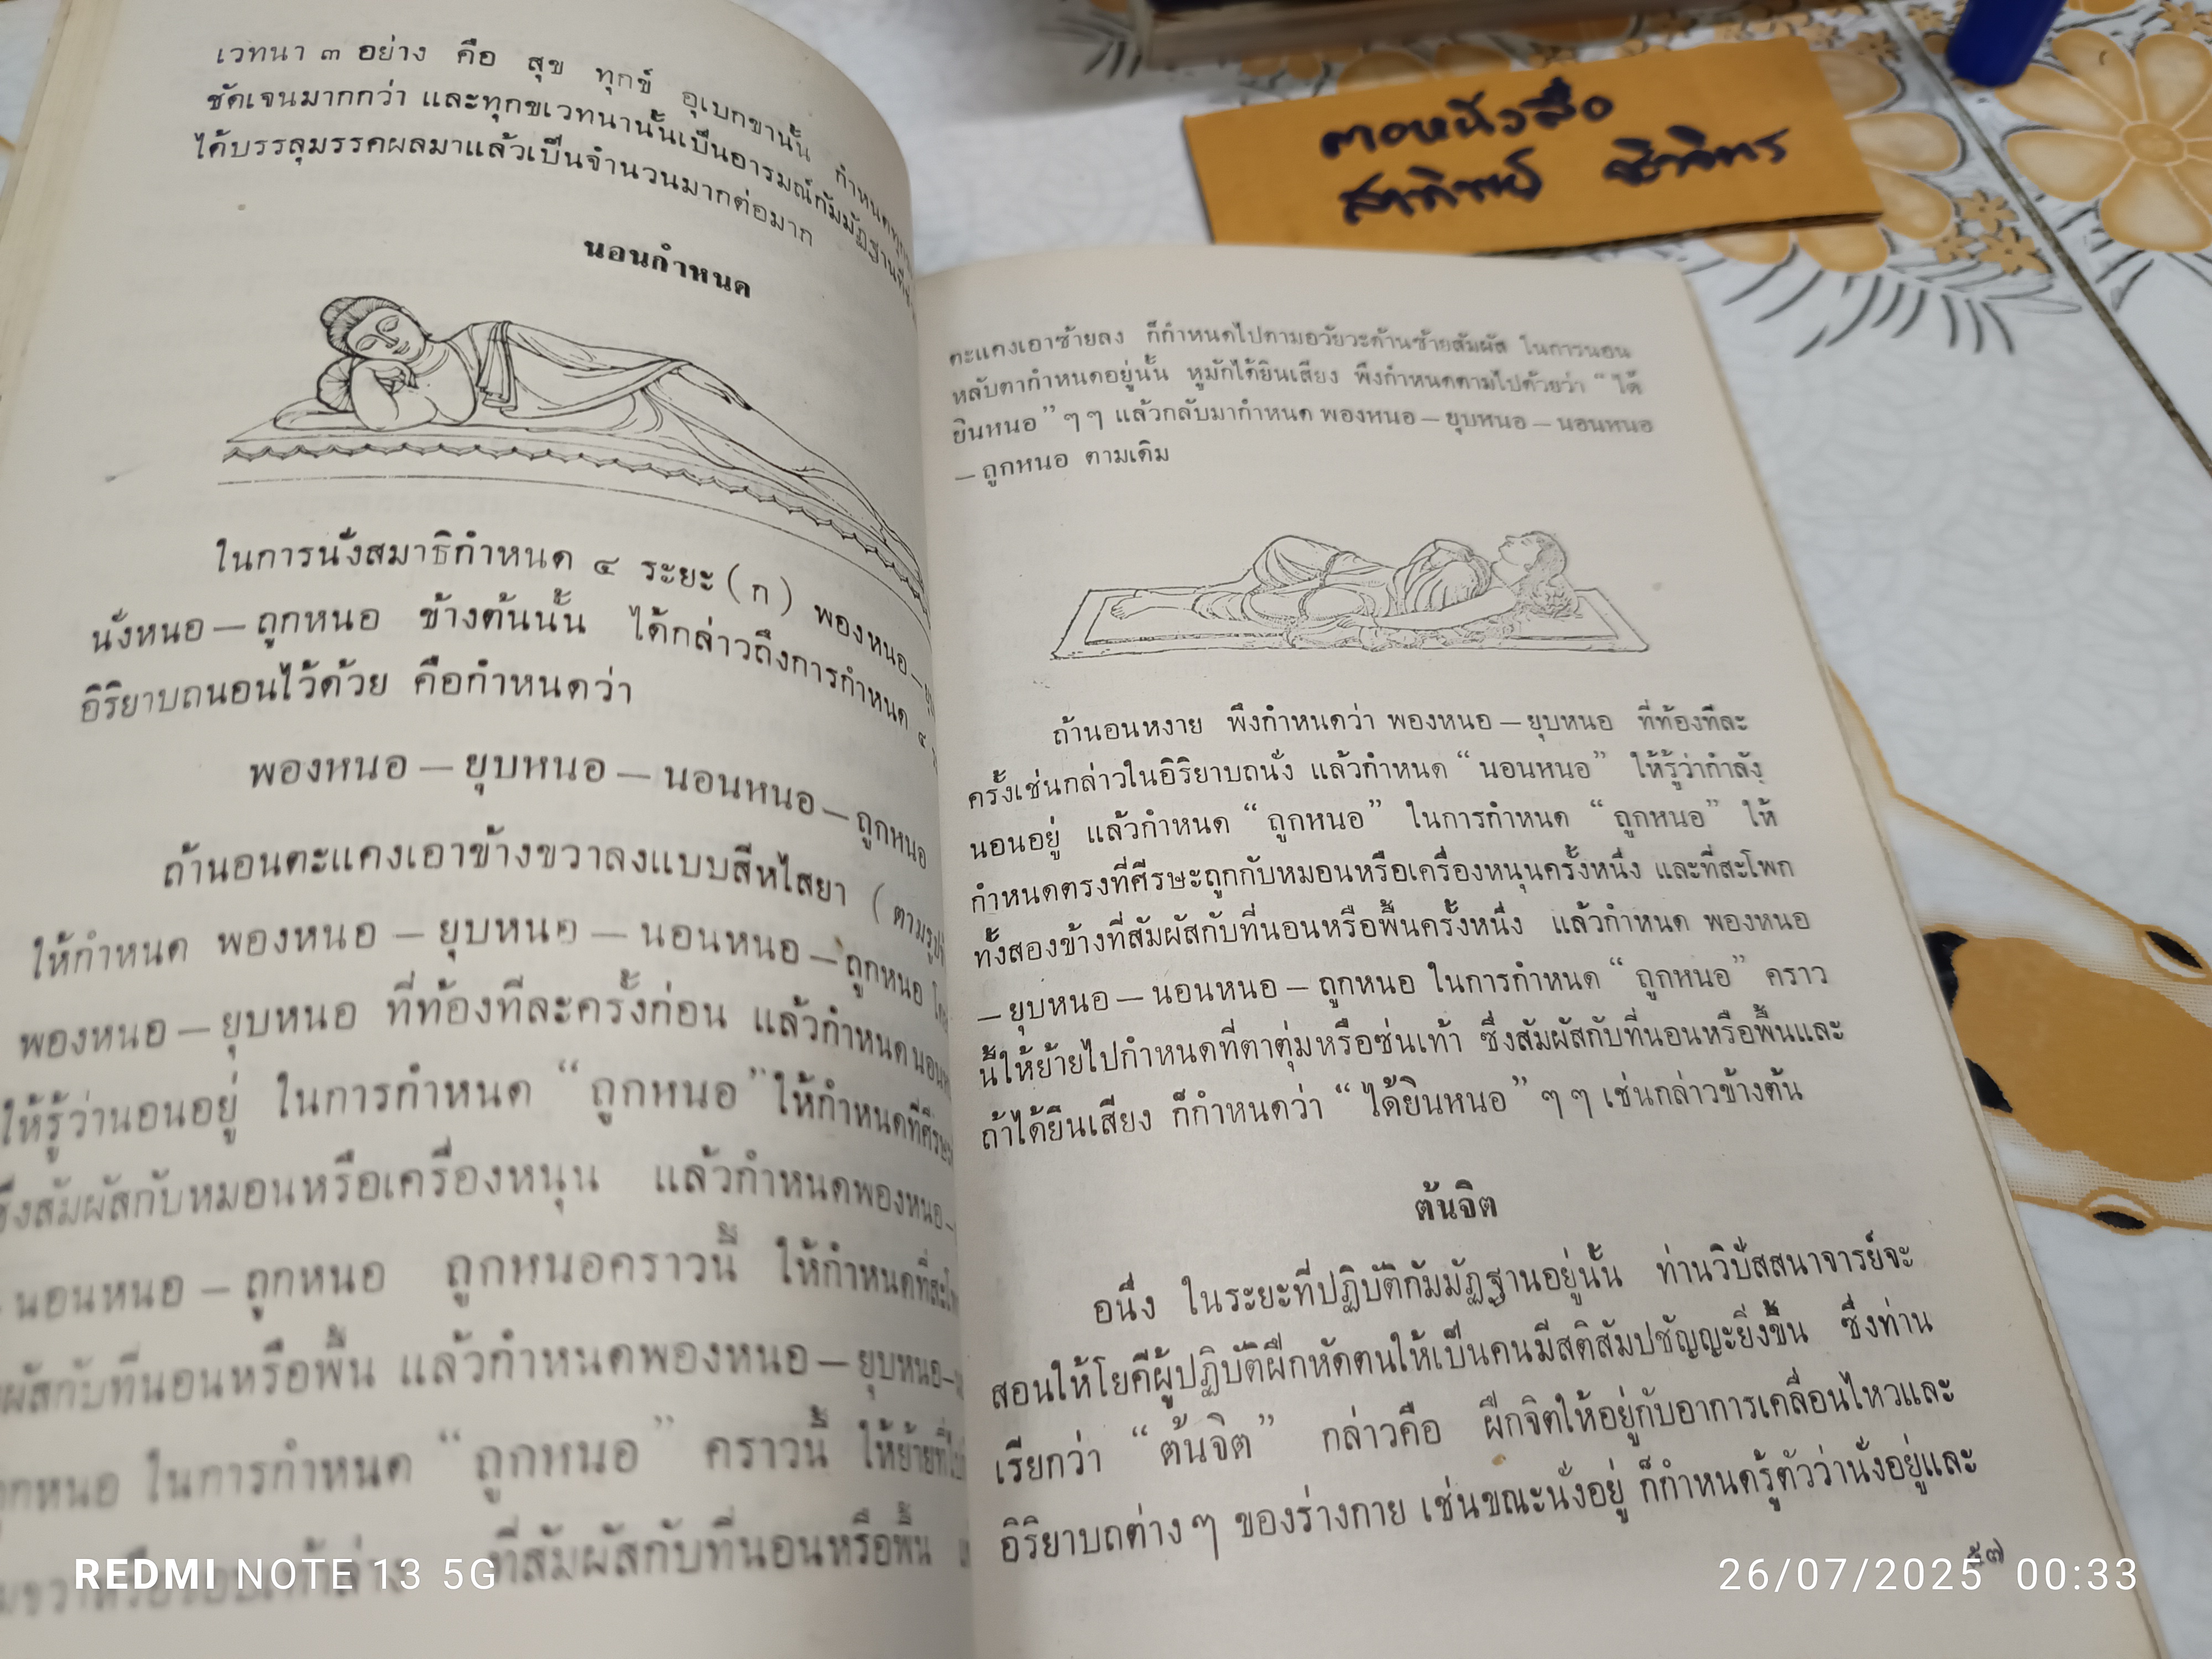 เวทนา ๓ อย่าง คือ สุข ทุกข์ อุเบกขานั้น
ชัดเจนมากกว่า และทุกขเวทนานั้นเป็นอารมณ์กัมมัฏฐานที่
ได้บรรลุมรรคผลมาแล้วเป็นจำนวนมากต่อมาก
นอนกำหนด
ในการนั่งสมาธิกำหนด ๔ ระยะ (ก) พองหนอ –
นั่งหนอ – ถูกหนอ ข้างต้นนั้น ได้กล่าวถึงการกำหนด ๔
อิริยาบถนอนไว้ด้วย คือกำหนดว่า
พองหนอ – ยุบหนอ – นอนหนอ – ถูกหนอ
ถ้านอนตะแคงเอาข้างขวาลงแบบสีหไสยา (ตามรูป
ให้กำหนด พองหนอ – ยุบหนอ – นอนหนอ – ถูกหนอ
พองหนอ – ยุบหนอ ที่ท้องทีละครั้งก่อน แล้วกำหนด
ให้รู้ว่านอนอยู่ ในการกำหนด “ถูกหนอ” ให้กำหนดที่
ซึ่งสัมผัสกับหมอนหรือเครื่องหนุน แล้วกำหนดพองหนอ –
นอนหนอ – ถูกหนอ ถูกหนอคราวนี้ ให้กำหนดที่
ผัสกับที่นอนหรือพื้น แล้วกำหนดพองหนอ – ยุบหนอ –
ในการกำหนด “ถูกหนอ” คราวนี้ ให้ย้ายที่
ที่สัมผัสกับที่นอนหรือพื้น
ตะแคงเอาซ้ายลง ก็กำหนดไปตามอวัยวะด้านซ้ายสัมผัส ในการนอน
หลับตากำหนดอยู่นั้น หูมักได้ยินเสียง พึงกำหนดตามไปด้วยว่า “ได้
ยินหนอ” ๆ ๆ แล้วกลับมากำหนด พองหนอ – ยุบหนอ – นอนหนอ
– ถูกหนอ ตามเดิม
ถ้านอนหงาย พึงกำหนดว่า พองหนอ – ยุบหนอ ที่ท้องทีละ
ครั้งเช่นกล่าวในอิริยาบถนั่ง แล้วกำหนด “นอนหนอ” ให้รู้ว่ากำลัง
นอนอยู่ แล้วกำหนด “ถูกหนอ” ในการกำหนด “ถูกหนอ” ให้
กำหนดตรงที่ศีรษะถูกกับหมอนหรือเครื่องหนุนครั้งหนึ่ง และที่สะโพก
ทั้งสองข้างที่สัมผัสกับที่นอนหรือพื้นครั้งหนึ่ง แล้วกำหนด พองหนอ
– ยุบหนอ – นอนหนอ – ถูกหนอ ในการกำหนด “ถูกหนอ” คราว
นี้ให้ย้ายไปกำหนดที่ตาตุ่มหรือซ่นเท้า ซึ่งสัมผัสกับที่นอนหรือพื้นและ
ถ้าได้ยินเสียง ก็กำหนดว่า “ได้ยินหนอ” ๆ ๆ เช่นกล่าวข้างต้น
ต้นจิต
อนึ่ง ในระยะที่ปฏิบัติกัมมัฏฐานอยู่นั้น ท่านวิปัสสนาจารย์จะ
สอนให้โยคีผู้ปฏิบัติฝึกหัดตนให้เป็นคนมีสติสัมปชัญญะยิ่งขึ้น ซึ่งท่าน
เรียกว่า “ต้นจิต” กล่าวคือ ฝึกจิตให้อยู่กับอาการเคลื่อนไหวและ
อิริยาบถต่าง ๆ ของร่างกาย เช่นขณะนั่งอยู่ ก็กำหนดรู้ตัวว่านั่งอยู่และ
REDMI NOTE 13 5G
26/07/2025 00:33